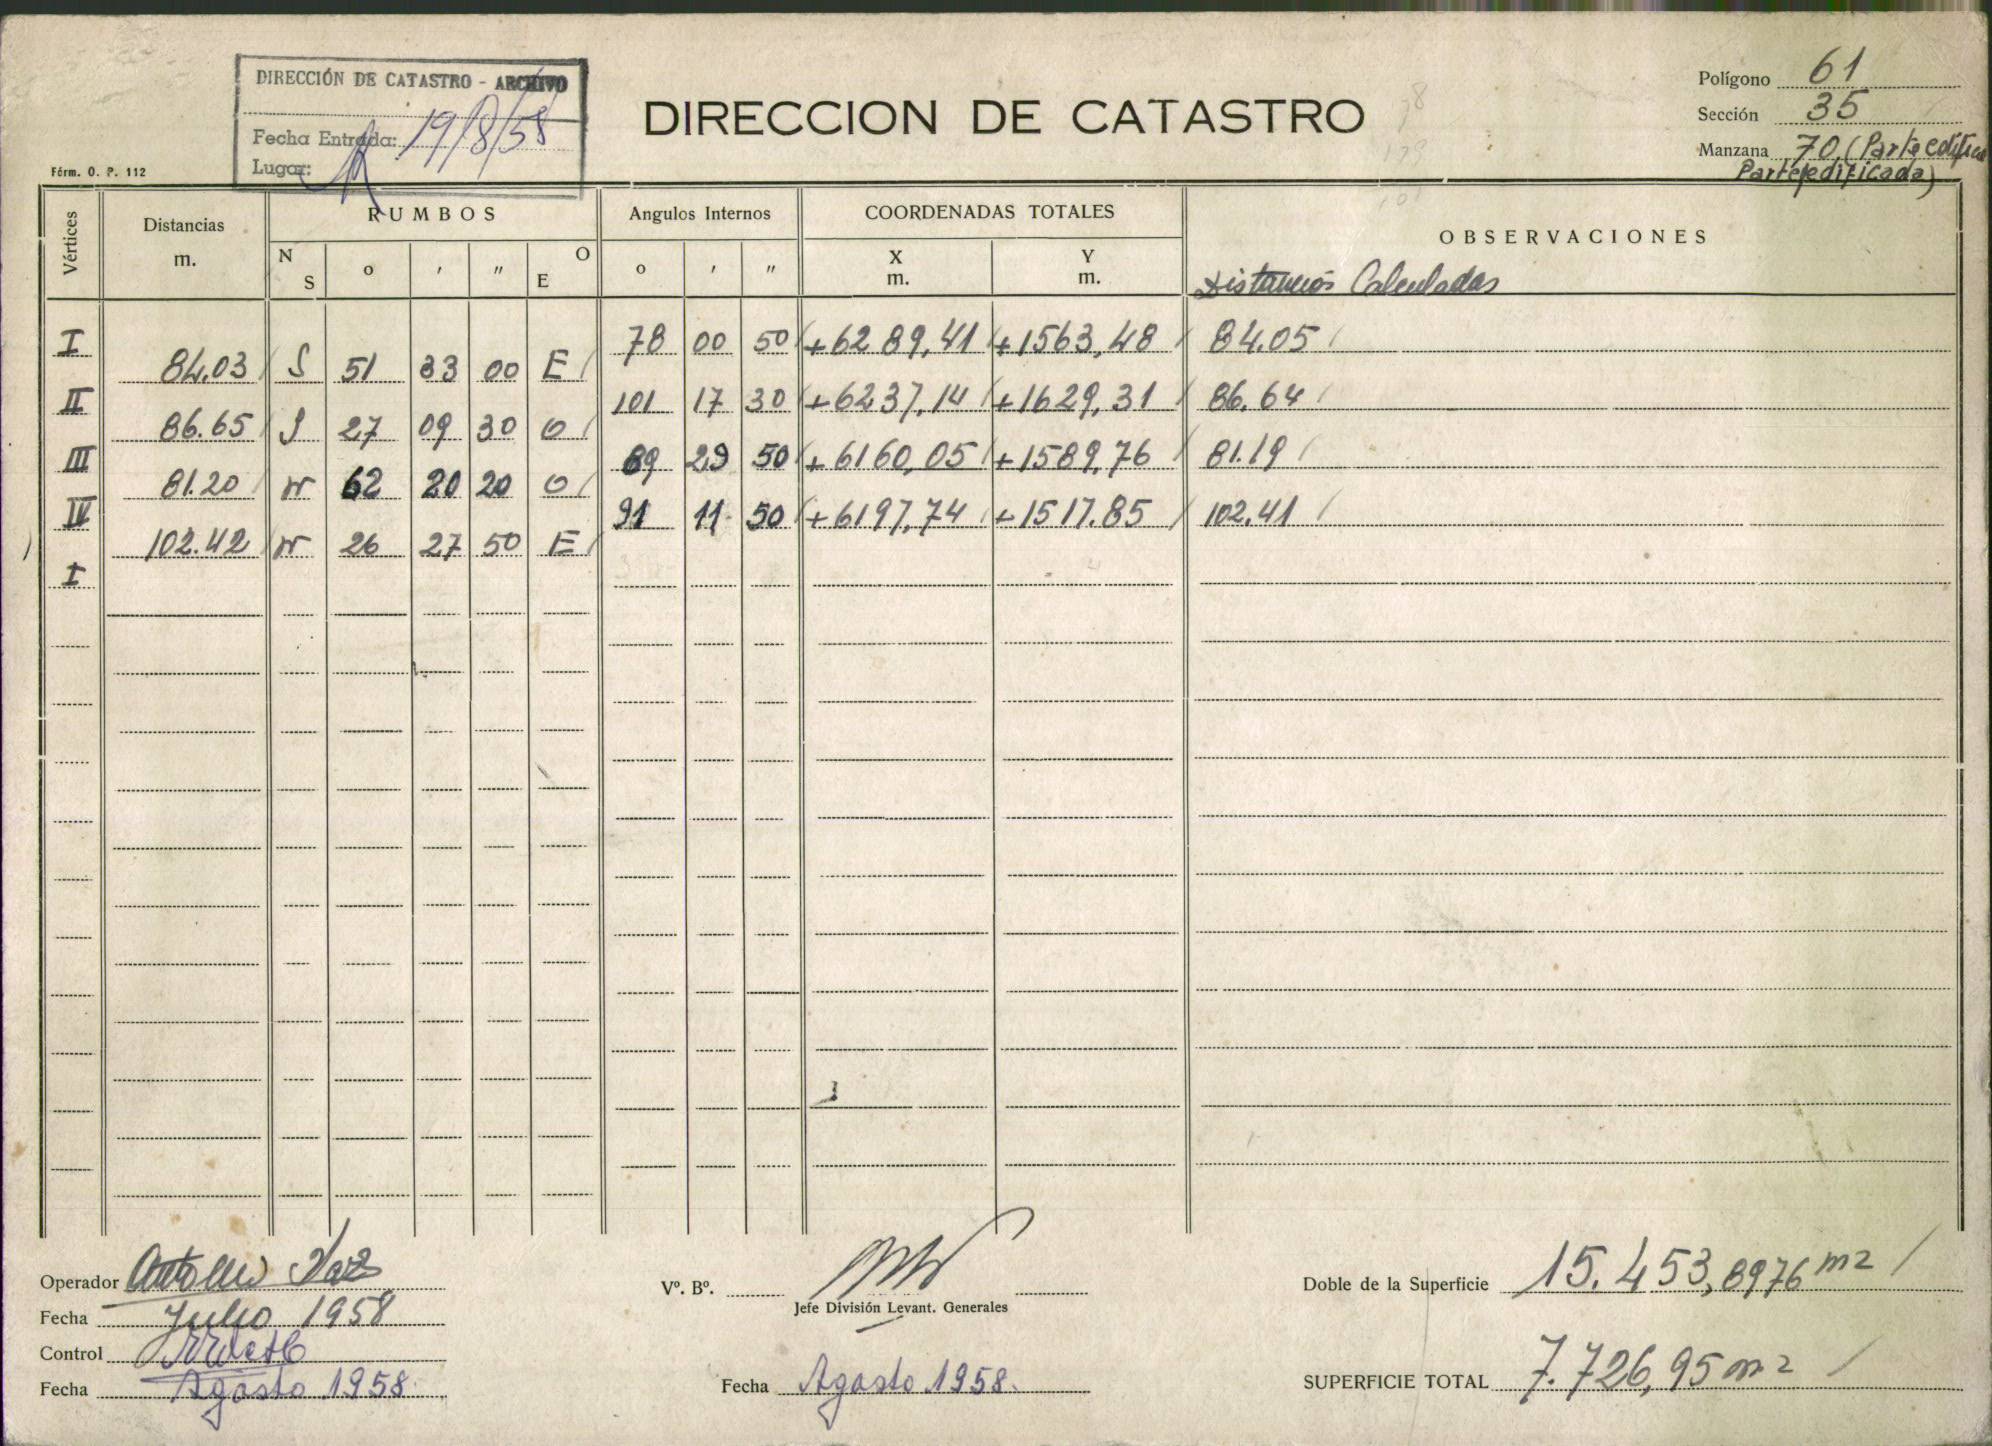 DIRECCIÓN DE CATASTRO - ARCHIVO
Fecha Entrada: 19/8/58
Lugar:
Fórm. O. P. 112
DIRECCION DE CATASTRO
Polígono 61
Sección 35
Manzana 70 (Parte edifica
Parte edificada)
Vértices
Distancias
m.
RUMBOS
N S ° ' " E O
Angulos Internos
° ' "
COORDENADAS TOTALES
X m. Y m.
OBSERVACIONES
Distancias Calculadas
I 78 00 50 +6289,41 +1563,48 84.05
84.03 S 51 33 00 E
II 101 17 30 +6237,14 +1629,31 86.64
86.65 S 27 09 30 O
III 89 29 50 +6160,05 +1589,76 81.19
81.20 N 62 20 20 O
IV 91 11 50 +6197,74 +1517.85 102.41
102.42 N 26 27 50 E
I
Operador
Fecha Julio 1958
Control
Fecha Agosto 1958
Vº. Bº.
Jefe División Levant. Generales
Fecha Agosto 1958.
Doble de la Superficie 15.453,8976 m2
SUPERFICIE TOTAL 7.726,95 m2